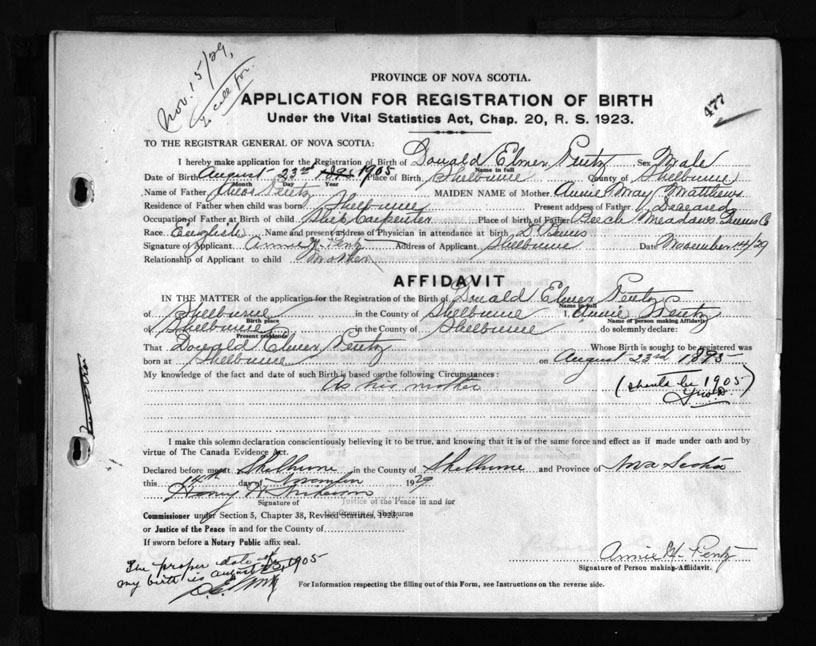 Nov. 15/29,
to call for.
477
PROVINCE OF NOVA SCOTIA.
APPLICATION FOR REGISTRATION OF BIRTH
Under the Vital Statistics Act, Chap. 20, R. S. 1923.
TO THE REGISTRAR GENERAL OF NOVA SCOTIA:
I hereby make application for the Registration of Birth of Donald Elmer Pentz Sex Male
Name in full
Date of Birth August 23rd 1905 Place of Birth Shelburne County of Shelburne
Month Day Year
Name of Father Pentz MAIDEN NAME of Mother Annie May Matthews
Residence of Father when child was born Shelburne Present address of Father Deceased
Occupation of Father at Birth of child Ship Carpenter Place of birth of Father Beech Meadows Queens Co
Race English Name and present address of Physician in attendance at birth D Burns
Signature of Applicant Annie Pentz Address of Applicant Shelburne Date November 14/29
Relationship of Applicant to child Mother
AFFIDAVIT
IN THE MATTER of the application for the Registration of the Birth of Donald Elmer Pentz
Name in full
of Shelburne in the County of Shelburne I, Annie Pentz
Birth place Name of person making Affidavit
of Shelburne in the County of Shelburne do solemnly declare:
Present residence
That Donald Elmer Pentz Whose Birth is sought to be registered was
born at Shelburne on August 23rd 1895
My knowledge of the fact and date of such Birth is based on the following Circumstances:
As his mother
(should be 1905
)
I make this solemn declaration conscientiously believing it to be true, and knowing that it is of the same force and effect as if made under oath and by
virtue of The Canada Evidence Act.
Declared before me at Shelburne in the County of Shelburne and Province of Nova Scotia
this 14th day of November 1929
Harry
Signature of Justice of the Peace in and for
Commissioner under Section 5, Chapter 38, Revised Statutes, 1923.
or Justice of the Peace in and for the County of
If sworn before a Notary Public affix seal.
Annie Pentz
Signature of Person making Affidavit.
The proper date of
my birth is August 23, 1905
For Information respecting the filling out of this Form, see Instructions on the reverse side.